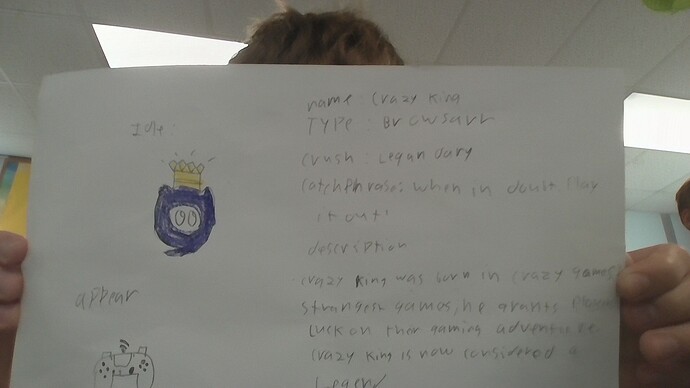 name: Crazy King
TYPE: Browsarr
Idle:
Crush: Legandary
Catchphrase: when in doubt Play
it out!
description
Crazy King was born in crazy games
appear
strangest games, he grants Players
Luck on ther gaming adventure.
Crazy King is now considered a
Legend